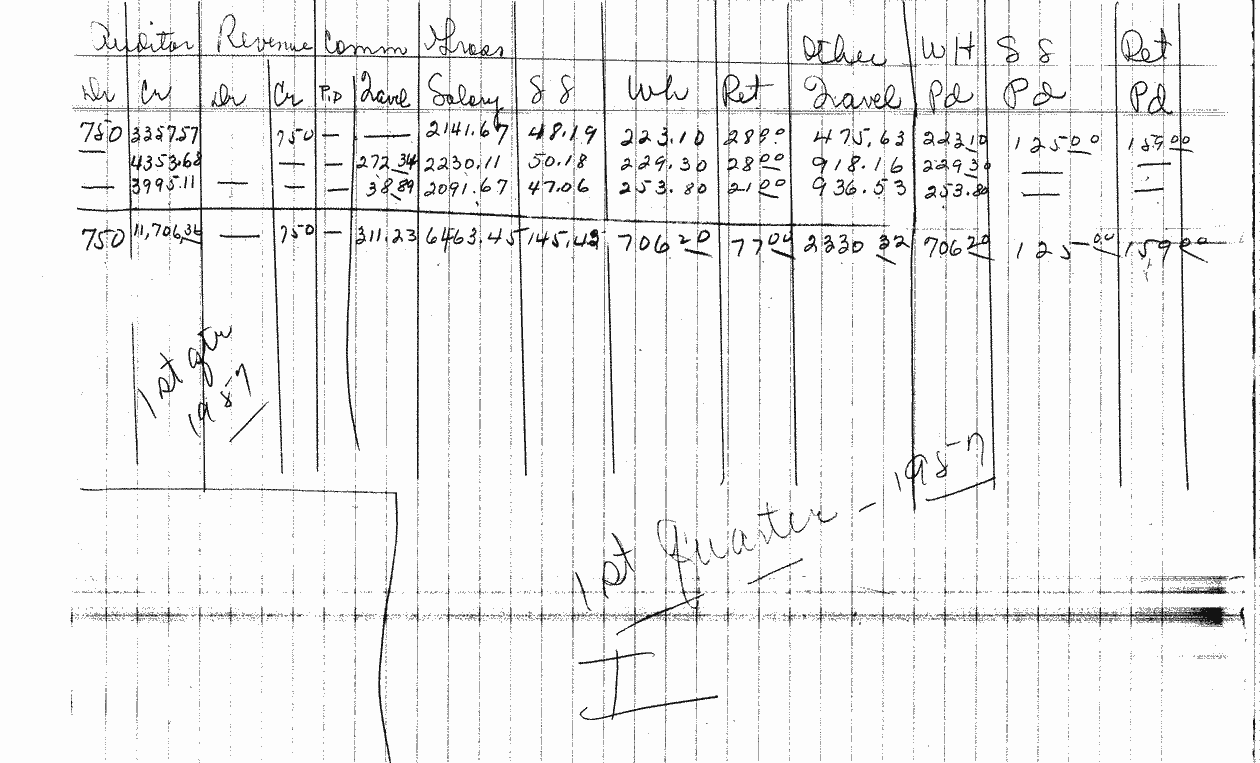 Auditor Revenue Comm Gross Other W H S S Ret
Dr Cr Dr Cr Pd Travel Salary S S Wh Ret Travel Pd Pd Pd
750 3357.57 750 — — 2141.67 48.19 223.10 28 00 475.63 223 10 125 00 159 00
— 4353.68 — — 272.34 2230.11 50.18 229.30 28 00 918.16 229 30 — —
— 3995.11 — — — 38.89 2091.67 47.06 253.80 21 00 936.53 253.80 — —
750 11,706.36 — 750 — 311.23 6463.45 145.43 706 20 77 00 2330 32 706 20 125 00 159 00
1st qtr
1957
1st Quarter - 1957
I